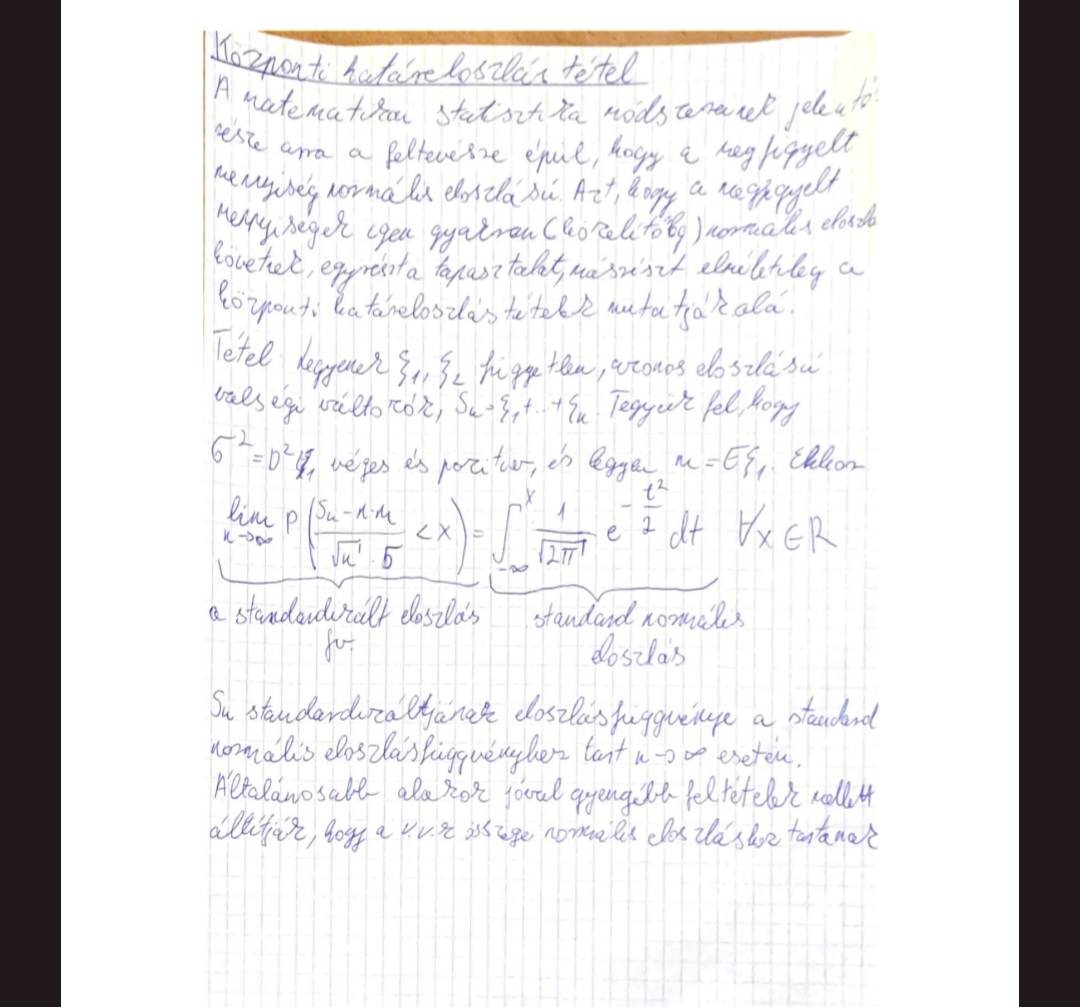 Központi határeloszlás tétel
A matematikai statisztika módszereinek jelentő
része arra a feltevésre épül, hogy a megfigyelt
mennyiség normális eloszlású. Azt, hogy a megfigyelt
mennyiségek igen gyakran (közelítőleg) normális eloszlá
követnek, egyrészt a tapasztalat, másrészt elméletileg a
központi határeloszlás tételek mutatják alá.
Tétel: Legyenek ξ₁, ξ₂ független, azonos eloszlású
valségi változók, Sₙ=ξ₁+..+ξₙ. Tegyük fel, hogy
σ²=D²ξ₁ véges és pozitív, és legyen m=Eξ₁. Ekkor
lim n→∞ P(Sₙ-n·m / √n·σ < x) = ∫_{-∞}^{x} 1/√2π e^{-t²/2} dt ∀x∈R
a standardizált eloszlás standard normális
fv. eloszlás
Sₙ standardizáltjának eloszlásfüggvénye a standard
normális eloszlásfüggvényhez tart n→∞ esetén.
Általánosabb alakok jóval gyengébb feltételek mellett
állítják, hogy a v.v.-k összege normális eloszláshoz tartanak